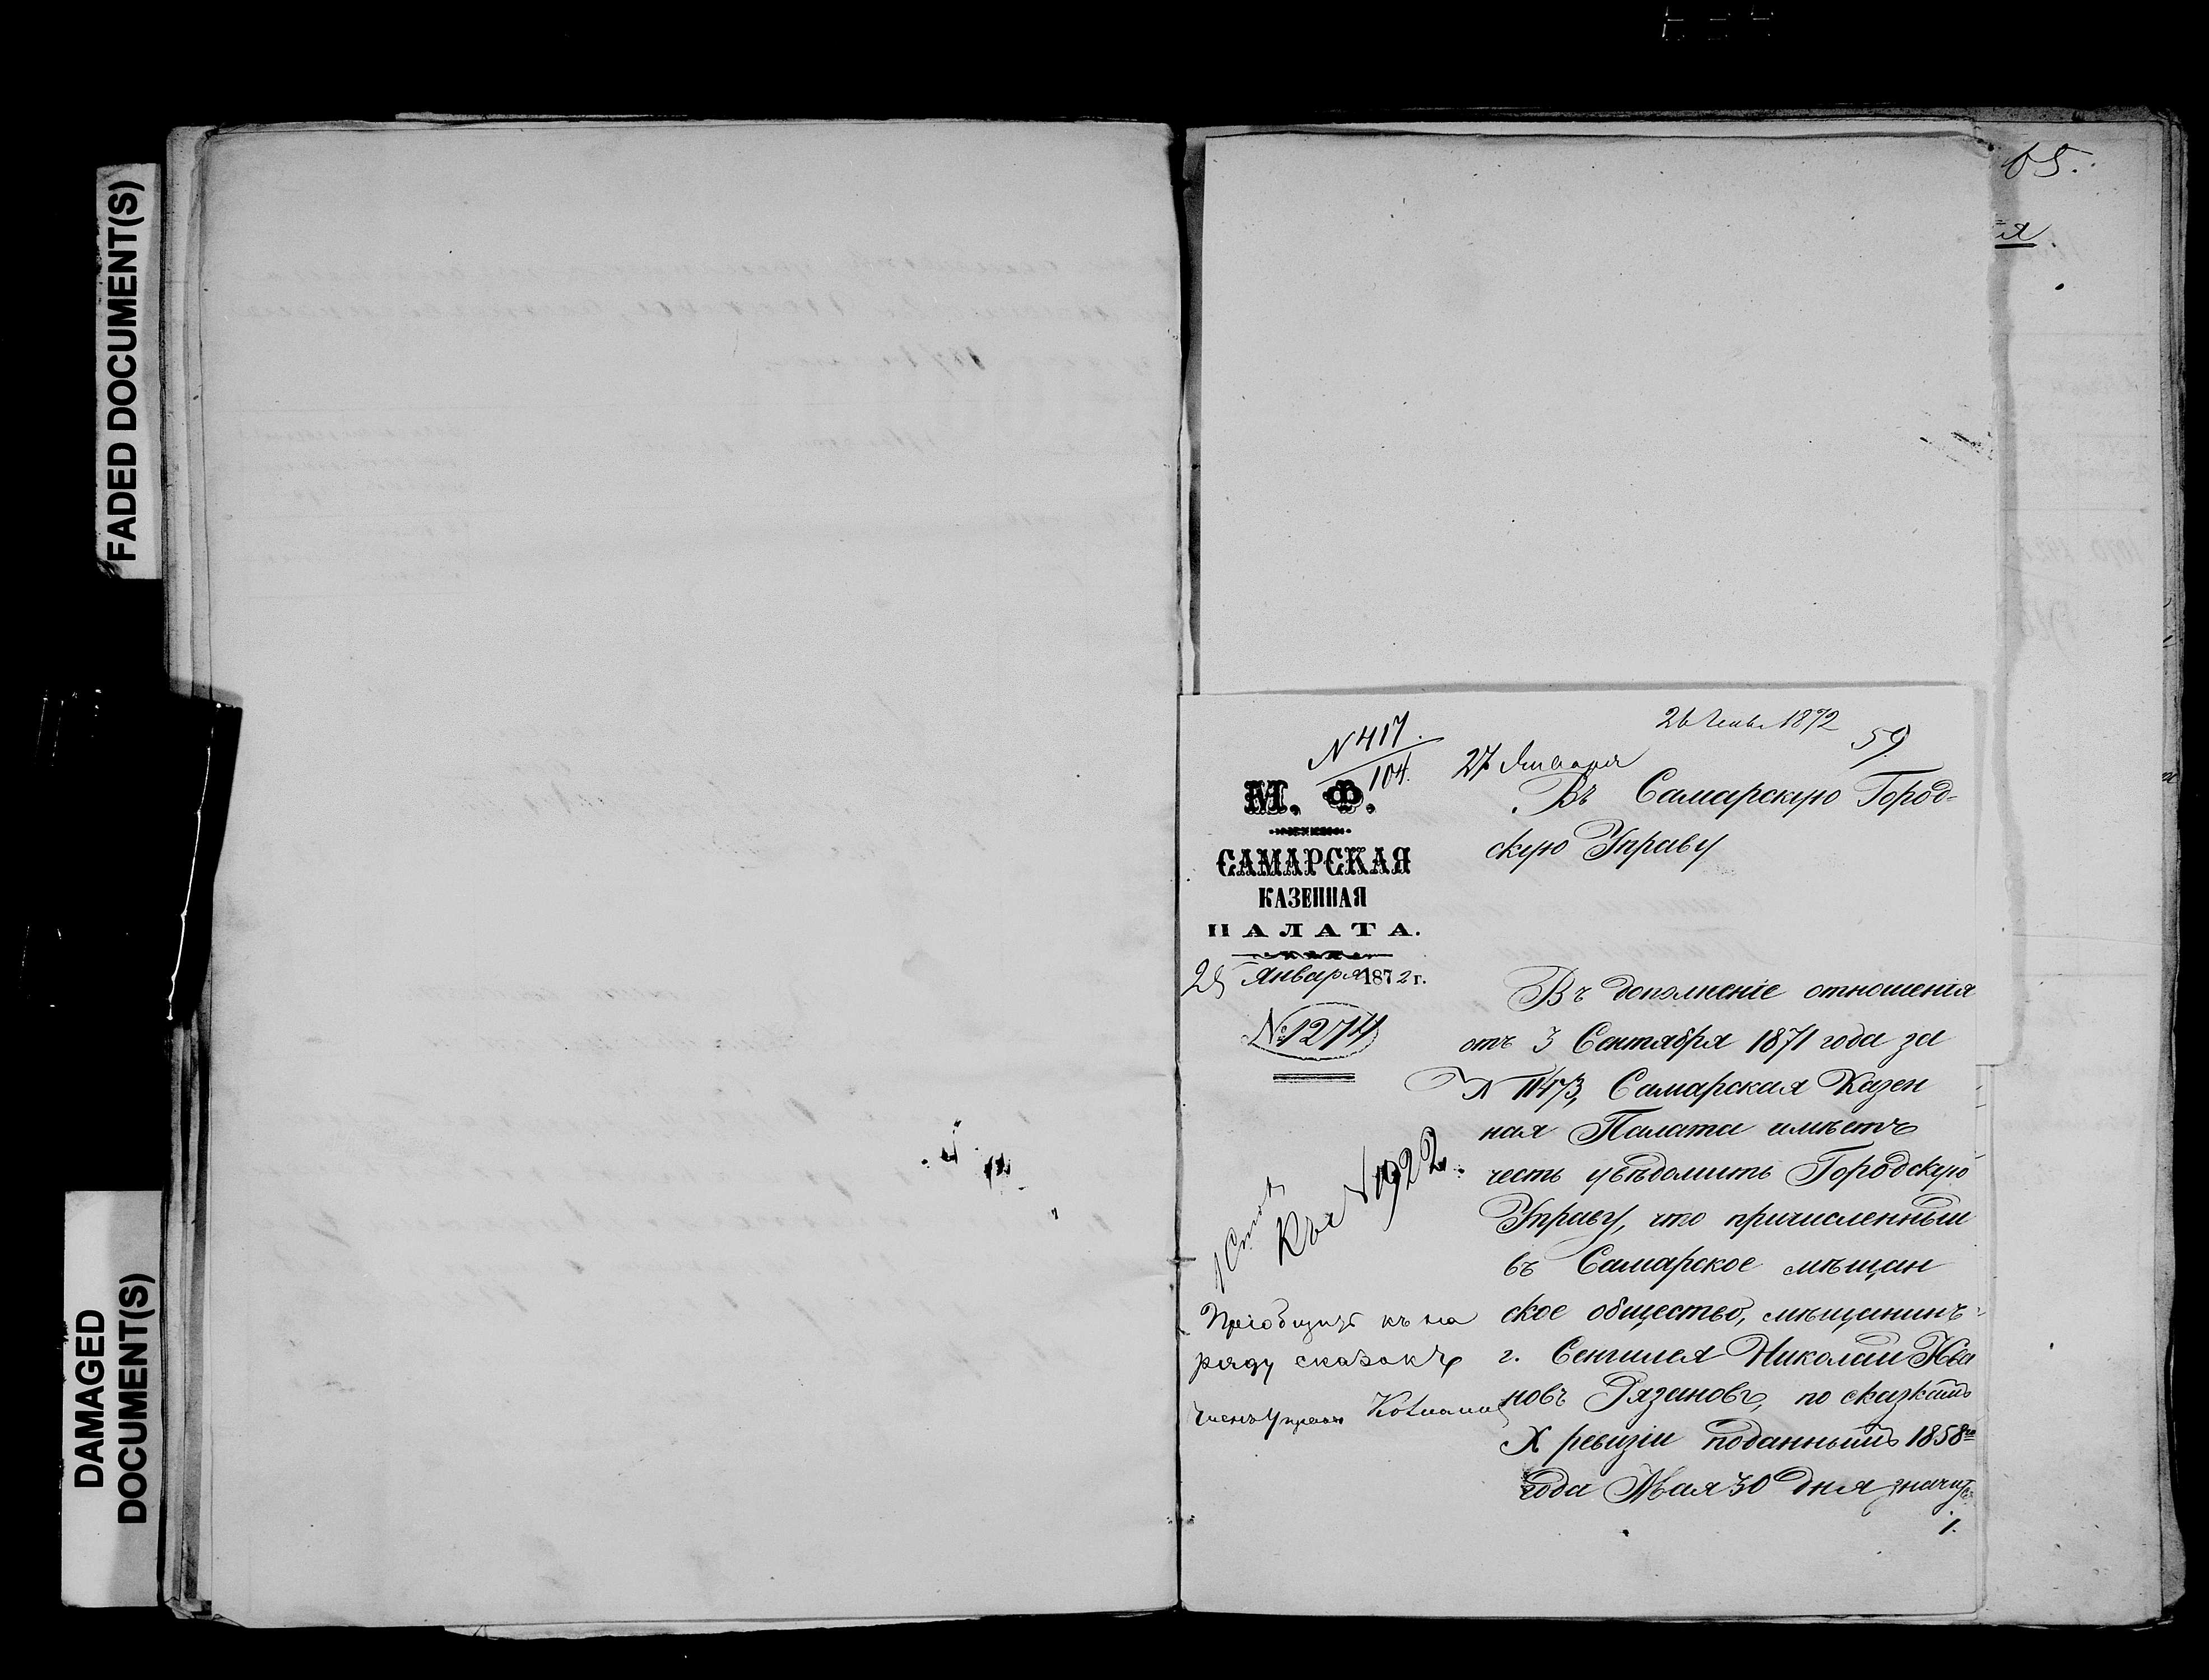 FADED DOCUMENT(S)
DAMAGED
DOCUMENT(S)
65.
я.
26 Генв. 1872
59
№ 417.
104.
27 Января
М. Ф.
САМАРСКАЯ
КАЗЕННАЯ
ПАЛАТА.
25 Января 1872 г.
№ 1274
Въ Самарскую Город-
скую Управу
Въ дополненіе отношенія
отъ 3 Сентября 1871 года за
№ 11473, Самарская Казен
ная Палата имѣетъ
честь увѣдомить Городскую
Управу, что причисленный
въ Самарское мѣщан
ское общество, мѣщанинъ
г. Сенгилея Николай Ива
новъ Рязановъ, по сказкамъ
X ревизіи поданнымъ 1858го
года Мая 30 дня значится
1.
1 Стол
Къ № 1922.
Пріобщить къ на
ряду сказокъ
Членъ Управы